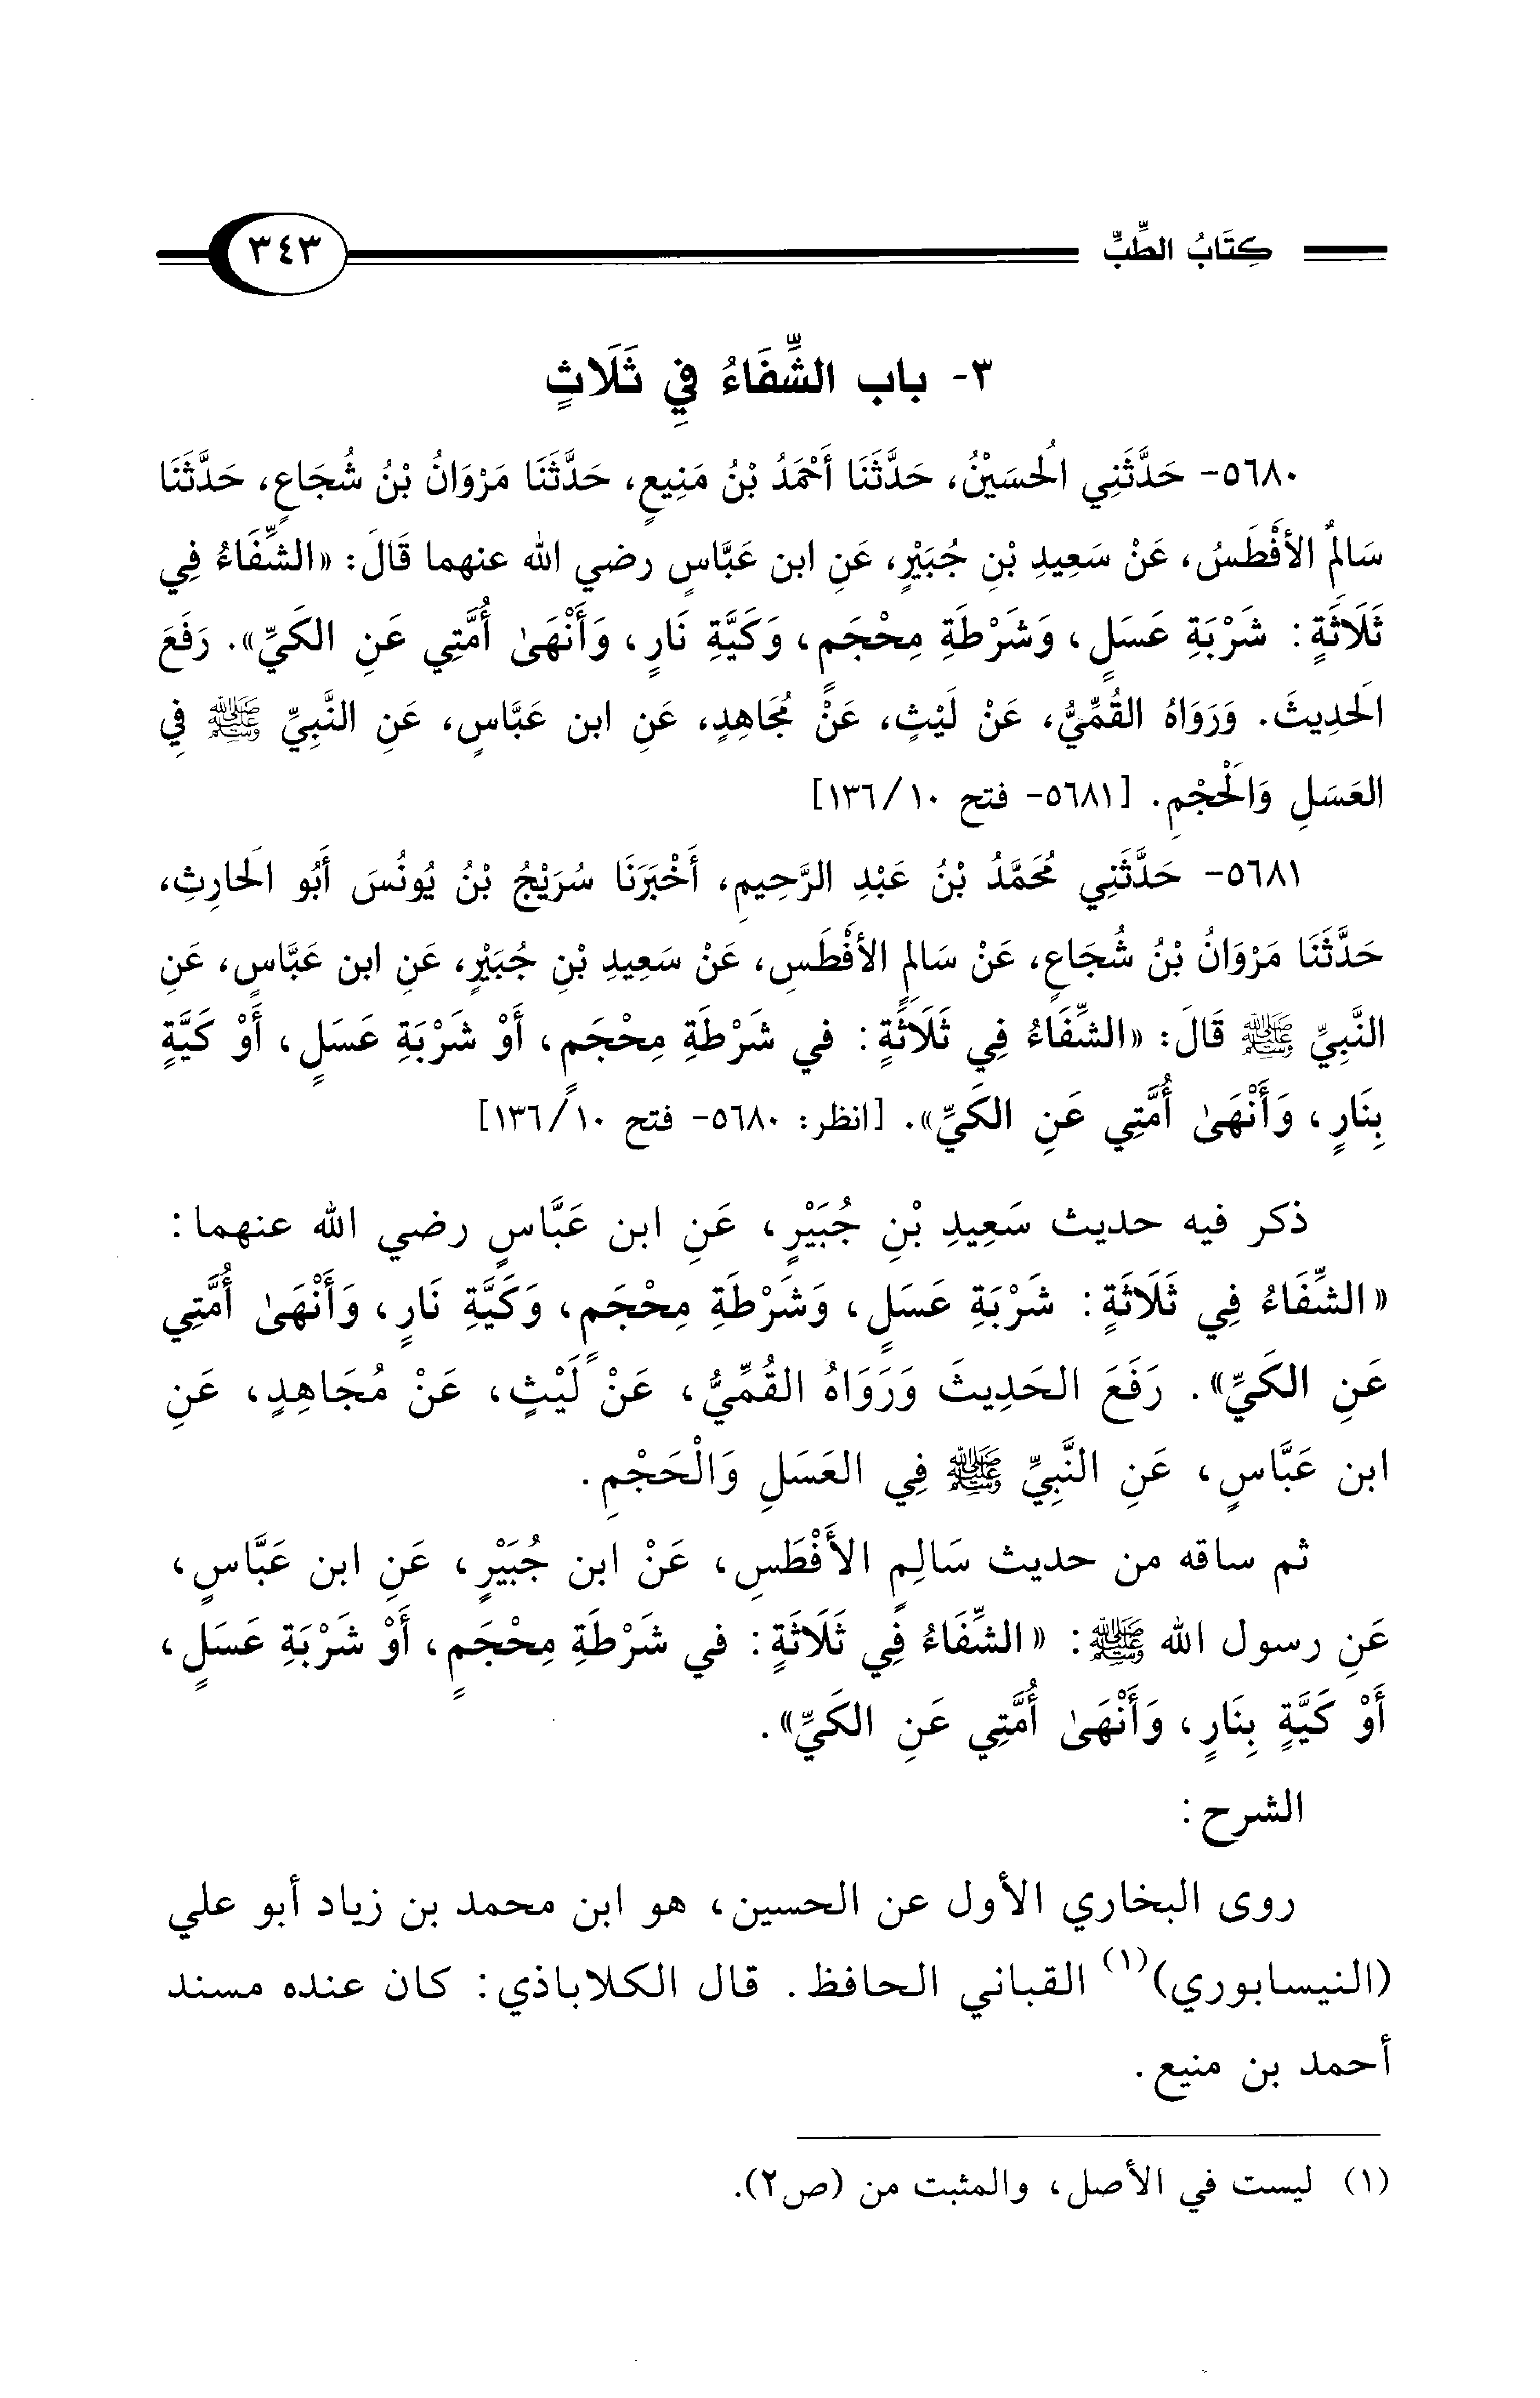 كِتَابُ الطِّبِّ ٣٤٣
٣- باب الشِّفَاءُ فِي ثَلَاثٍ
٥٦٨٠- حَدَّثَنِي الُحسَيْنُ، حَدَّثَنَا أَحْمَدُ بْنُ مَنِيعٍ، حَدَّثَنَا مَرْوَانُ بْنُ شُجَاعٍ، حَدَّثَنَا
سَالِمٌ الأَفْطَسُ، عَنْ سَعِيدِ بْنِ جُبَيْرٍ، عَنِ ابن عَبَّاسٍ رضي الله عنهما قَالَ: «الشِّفَاءُ فِي
ثَلَاثَةٍ: شَرْبَةِ عَسَلٍ، وَشَرْطَةِ مِحْجَمٍ، وَكَيَّةِ نَارٍ، وَأَنْهَىٰ أُمَّتِي عَنِ الكَيِّ». رَفَعَ
الَحدِيثَ. وَرَوَاهُ القُمِّيُّ، عَنْ لَيْثٍ، عَنْ مُجَاهِدٍ، عَنِ ابن عَبَّاسٍ، عَنِ النَّبِيِّ ﷺ فِي
العَسَلِ وَالَحْجْمِ. [٥٦٨١- فتح ١٠/١٣٦]
٥٦٨١- حَدَّثَنِي مُحَمَّدُ بْنُ عَبْدِ الرَّحِيمِ، أَخْبَرَنَا سُرَيْجُ بْنُ يُونُسَ أَبُو الَحارِثِ،
حَدَّثَنَا مَرْوَانُ بْنُ شُجَاعٍ، عَنْ سَالِمٍ الأَفْطَسِ، عَنْ سَعِيدِ بْنِ جُبَيْرٍ، عَنِ ابن عَبَّاسٍ، عَنِ
النَّبِيِّ ﷺ قَالَ: «الشِّفَاءُ فِي ثَلَاثَةٍ: في شَرْطَةِ مِحْجَمٍ، أَوْ شَرْبَةِ عَسَلٍ، أَوْ كَيَّةٍ
بِنَارٍ، وَأَنْهَىٰ أُمَّتِي عَنِ الكَيِّ». [انظر: ٥٦٨٠- فتح ١٠/١٣٦]
ذكر فيه حديث سَعِيدِ بْنِ جُبَيْرٍ، عَنِ ابن عَبَّاسٍ رضي الله عنهما:
«الشِّفَاءُ فِي ثَلَاثَةٍ: شَرْبَةِ عَسَلٍ، وَشَرْطَةِ مِحْجَمٍ، وَكَيَّةِ نَارٍ، وَأَنْهَىٰ أُمَّتِي
عَنِ الكَيِّ». رَفَعَ الحَدِيثَ وَرَوَاهُ القُمِّيُّ، عَنْ لَيْثٍ، عَنْ مُجَاهِدٍ، عَنِ
ابن عَبَّاسٍ، عَنِ النَّبِيِّ ﷺ فِي العَسَلِ وَالْحَجْمِ.
ثم ساقه من حديث سَالِمٍ الأَفْطَسِ، عَنْ ابن جُبَيْرٍ، عَنِ ابن عَبَّاسٍ،
عَنِ رسول الله ﷺ: «الشِّفَاءُ فِي ثَلَاثَةٍ: في شَرْطَةِ مِحْجَمٍ، أَوْ شَرْبَةِ عَسَلٍ،
أَوْ كَيَّةٍ بِنَارٍ، وَأَنْهَىٰ أُمَّتِي عَنِ الكَيِّ».
الشرح:
روى البخاري الأول عن الحسين، هو ابن محمد بن زياد أبو علي
(النيسابوري)(١) القباني الحافظ. قال الكلاباذي: كان عنده مسند
أحمد بن منيع.
(١) ليست في الأصل، والمثبت من (ص٢).